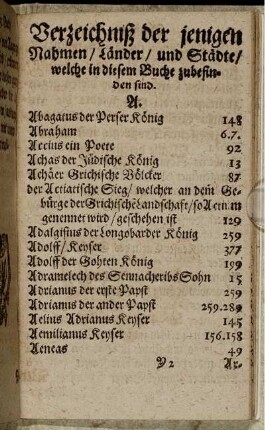 Verzeichniß der jenigen
Nahmen / Länder / und Städte /
welche in diesem Buche zubefin-
den sind.
A.
Abagatus der Perser König 148
Abraham 6.7.
Aecius ein Poete 92
Achas der Jüdische König 13
Achäer Grichische Völcker 87
der Actiatische Sieg / welcher an dem Ge-
bürge der Grichischē Landschafft / so
genennet wird / geschehen ist 129
Adalgisus der Longobarder König 259
Adolff / Keyser 377
Adolff der Gohten König 199
Adramelech des Sennacheribs Sohn 15
Adrianus der erste Papst 259
Adrianus der ander Papst 259.280
Aelius Adrianus Keyser 145
Aemilianus Keyser 156.158
Aeneas 49
Y 2 Ar-